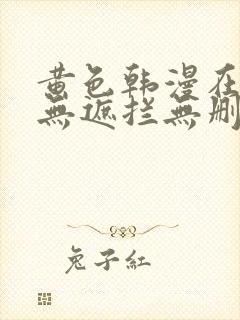 黄色韩漫在
無遮拦無删
兔子紅